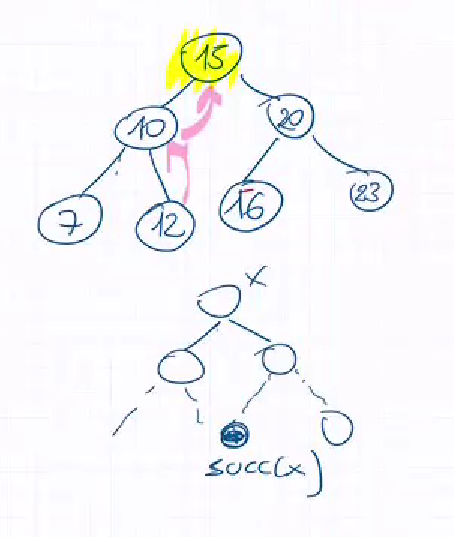 15
10 20
7 12 16 23
x
succ(x)